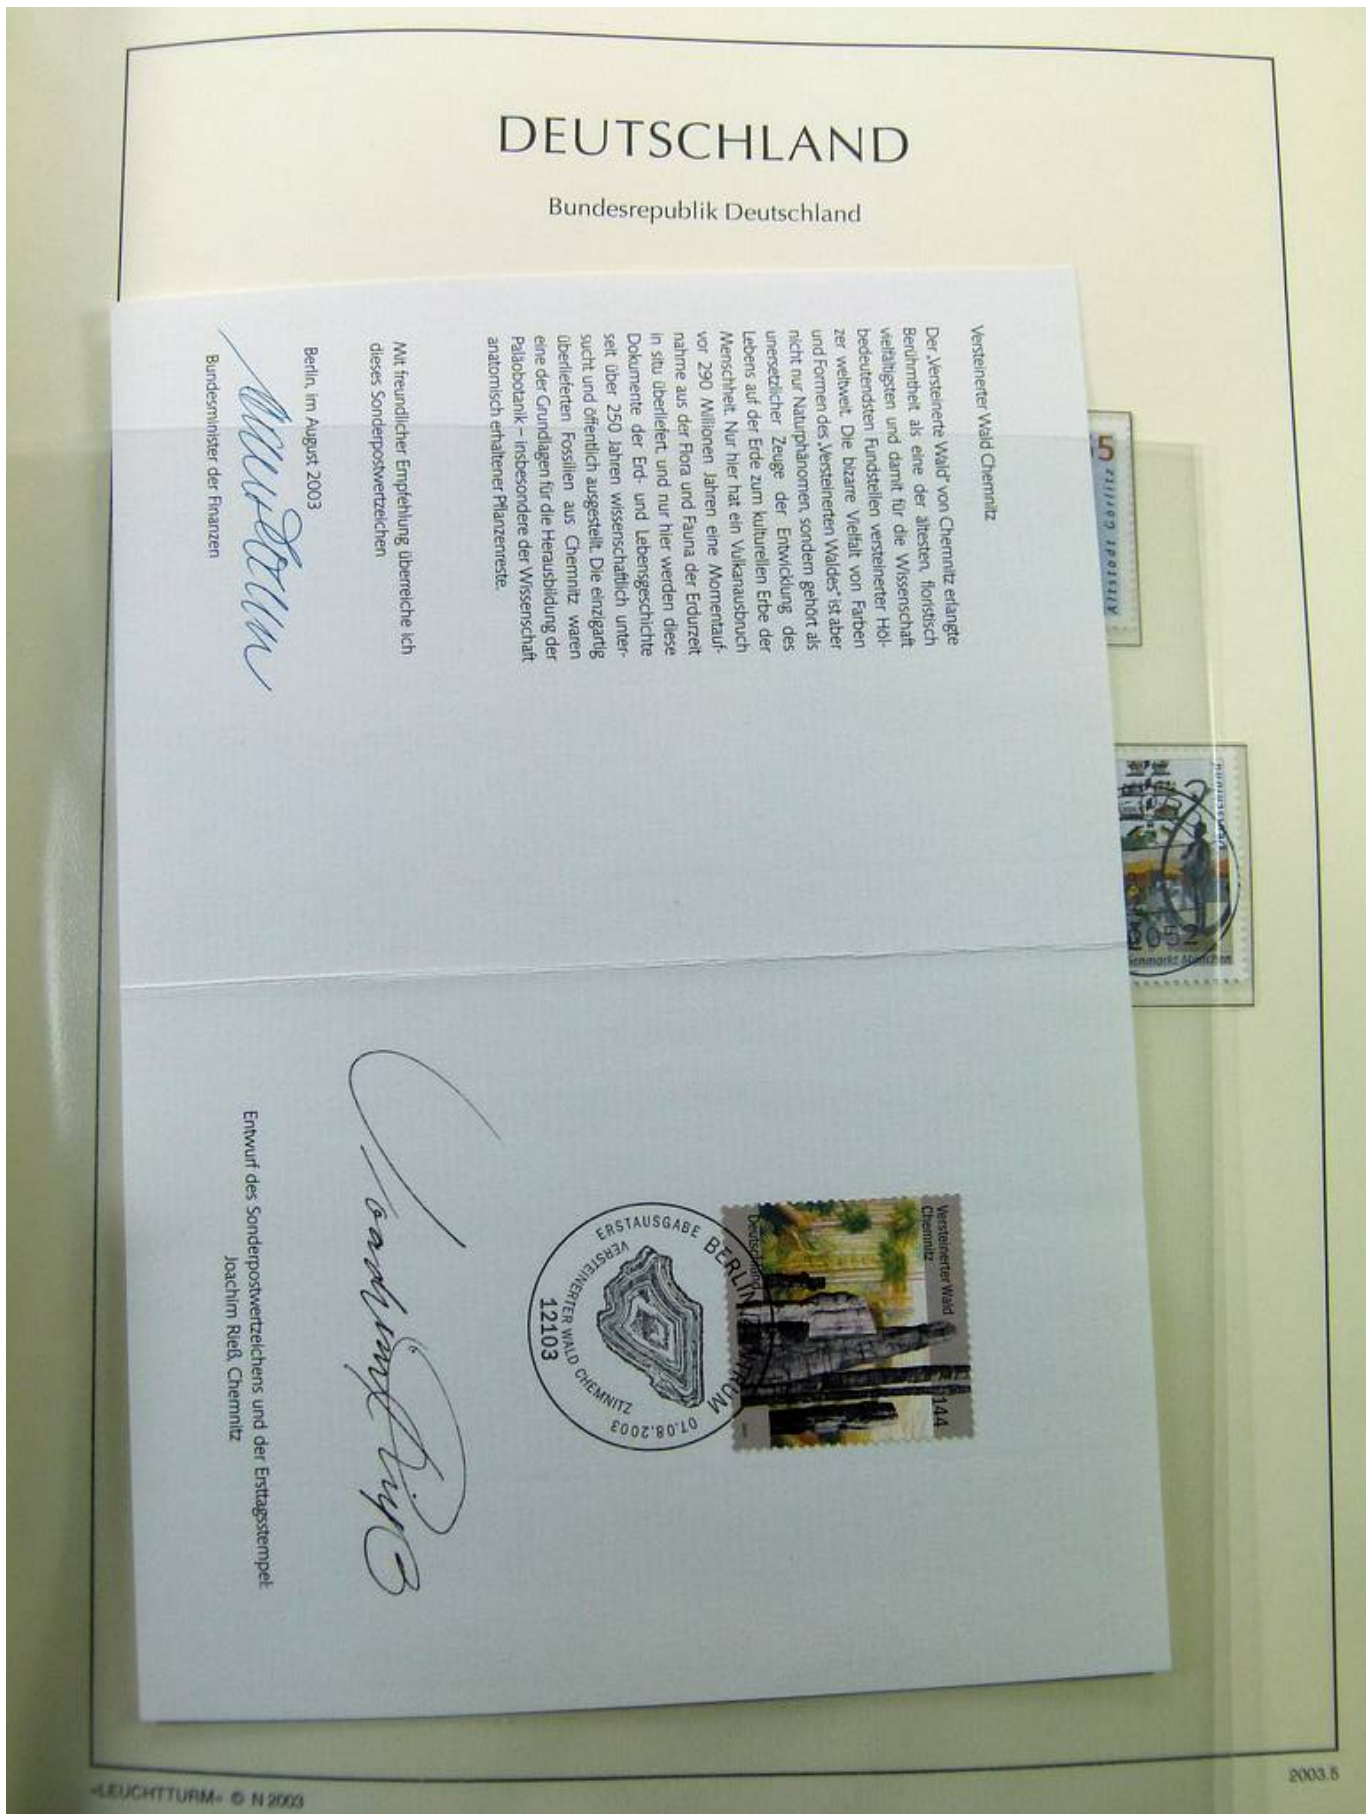 DEUTSCHLAND
Bundesrepublik Deutschland
Versteinerter Wald Chemnitz
Der „Versteinerte Wald“ von Chemnitz erlangte
Berühmtheit als eine der ältesten, floristisch
vielfältigsten und damit für die Wissenschaft
bedeutendsten Fundstellen versteinerter Höl-
zer weltweit. Die bizarre Vielfalt von Farben
und Formen des „Versteinerten Waldes“ ist aber
nicht nur Naturphänomen, sondern gehört als
unersetzlicher Zeuge der Entwicklung des
Lebens auf der Erde zum kulturellen Erbe der
Menschheit. Nur hier hat ein Vulkanausbruch
vor 290 Millionen Jahren eine Momentauf-
nahme aus der Flora und Fauna der Erdurzeit
in situ überliefert, und nur hier werden diese
Dokumente der Erd- und Lebensgeschichte
seit über 250 Jahren wissenschaftlich unter-
sucht und öffentlich ausgestellt. Die einzigartig
überlieferten Fossilien aus Chemnitz waren
eine der Grundlagen für die Herausbildung der
Paläobotanik – insbesondere der Wissenschaft
anatomisch erhaltener Pflanzenreste.
Mit freundlicher Empfehlung überreiche ich
dieses Sonderpostwertzeichen
Berlin, im August 2003
Bundesminister der Finanzen
Versteinerter Wald
Chemnitz
144
Deutschland
ERSTAUSGABE BERLIN
VERSTEINERTER WALD CHEMNITZ
07.08.2003
12103
Joachim Rieß
Entwurf des Sonderpostwertzeichens und der Ersttagsstempel:
Joachim Rieß, Chemnitz
5
Altstadt Görlitz
Deutschland
München
«LEUCHTTURM» © N 2003
2003.5